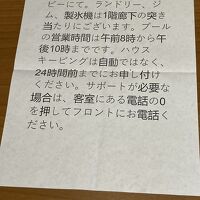 ビーにて。ランドリー、ジ
ム、製氷機は1階廊下の突き
当たりにございます。プール
の営業時間は午前8時から午
後10時までです。ハウス
キーピングは自動ではなく、
24時間前までにお申し付け
ください。サポートが必要な
場合は、客室にある電話の0
を押してフロントにお電話く
ださい。